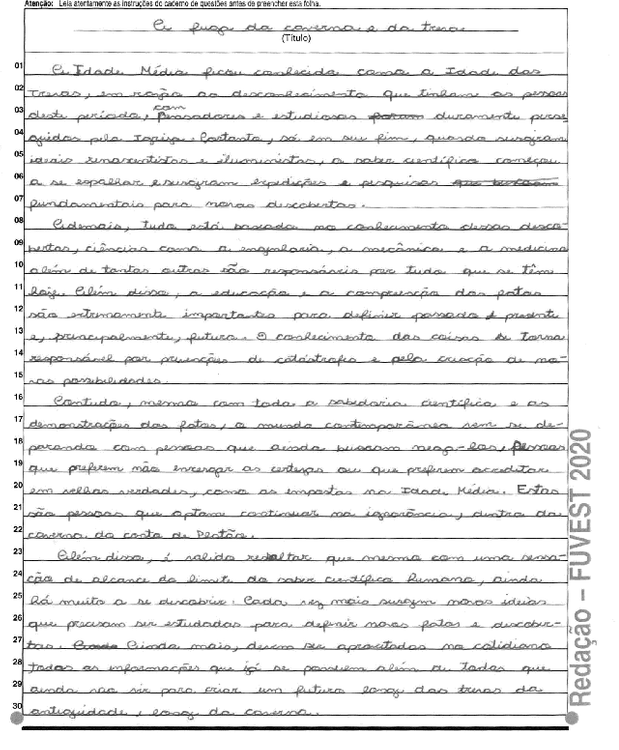 Atenção: Leia atentamente as instruções do caderno de questões antes de preencher esta folha.
A fuga da caverna e da treva
(Título)
01 A Idade Média ficou conhecida como a Idade das
02 Trevas, em razão ao desconhecimento que tinham as pessoas
03 deste período, com pensadores e estudiosos foram duramente perse-
04 guidos pela Igreja. Portanto, só em seu fim, quando surgiram
05 ideais renascentistas e iluministas, o saber científico começou
06 a se espalhar e surgiram expedições e pesquisas que buscavam
07 fundamentais para novas descobertas.
08 Ademais, tudo está baseado no conhecimento dessas desco-
09 bertas, ciências como a engenharia, a mecânica e a medicina
10 além de tantas outras são responsáveis por tudo que se têm
11 hoje. Além disso, a educação e a compreenção dos fatos
12 são extremamente importantes para definir passado, presente
13 e, principalmente, futuro. O conhecimento das coisas se torna
14 responsável por prevenções de catástrofes e pela criação de no-
15 vas possibilidades.
16 Contudo, mesmo com toda a sabedoria científica e as
17 demonstrações dos fatos, o mundo contemporâneo vem se de-
18 parando com pessoas que ainda buscam nega-los, Pessoas
19 que preferem não enxergar as certezas ou que preferem acreditar
20 em velhas verdades, como as impostas na Idade Média. Estas
21 são pessoas que optam continuar na ignorância, dentro da
22 caverna do conto de Platão.
23 Além disso, é valido ressaltar que mesmo com uma sensa-
24 ção de alcance do limite do saber científico humano, ainda
25 há muito a se descobrir. Cada vez mais surgem novas ideias
26 que precisam ser estudadas para definir novos fatos e descober-
27 tas. Ainda mais, devem ser aproveitadas no cotidiano
28 todas as informações que já se possuem além de todas que
29 ainda vão vir para criar um futuro longe das trevas da
30 antiguidade, longe da caverna.
Redação – FUVEST 2020